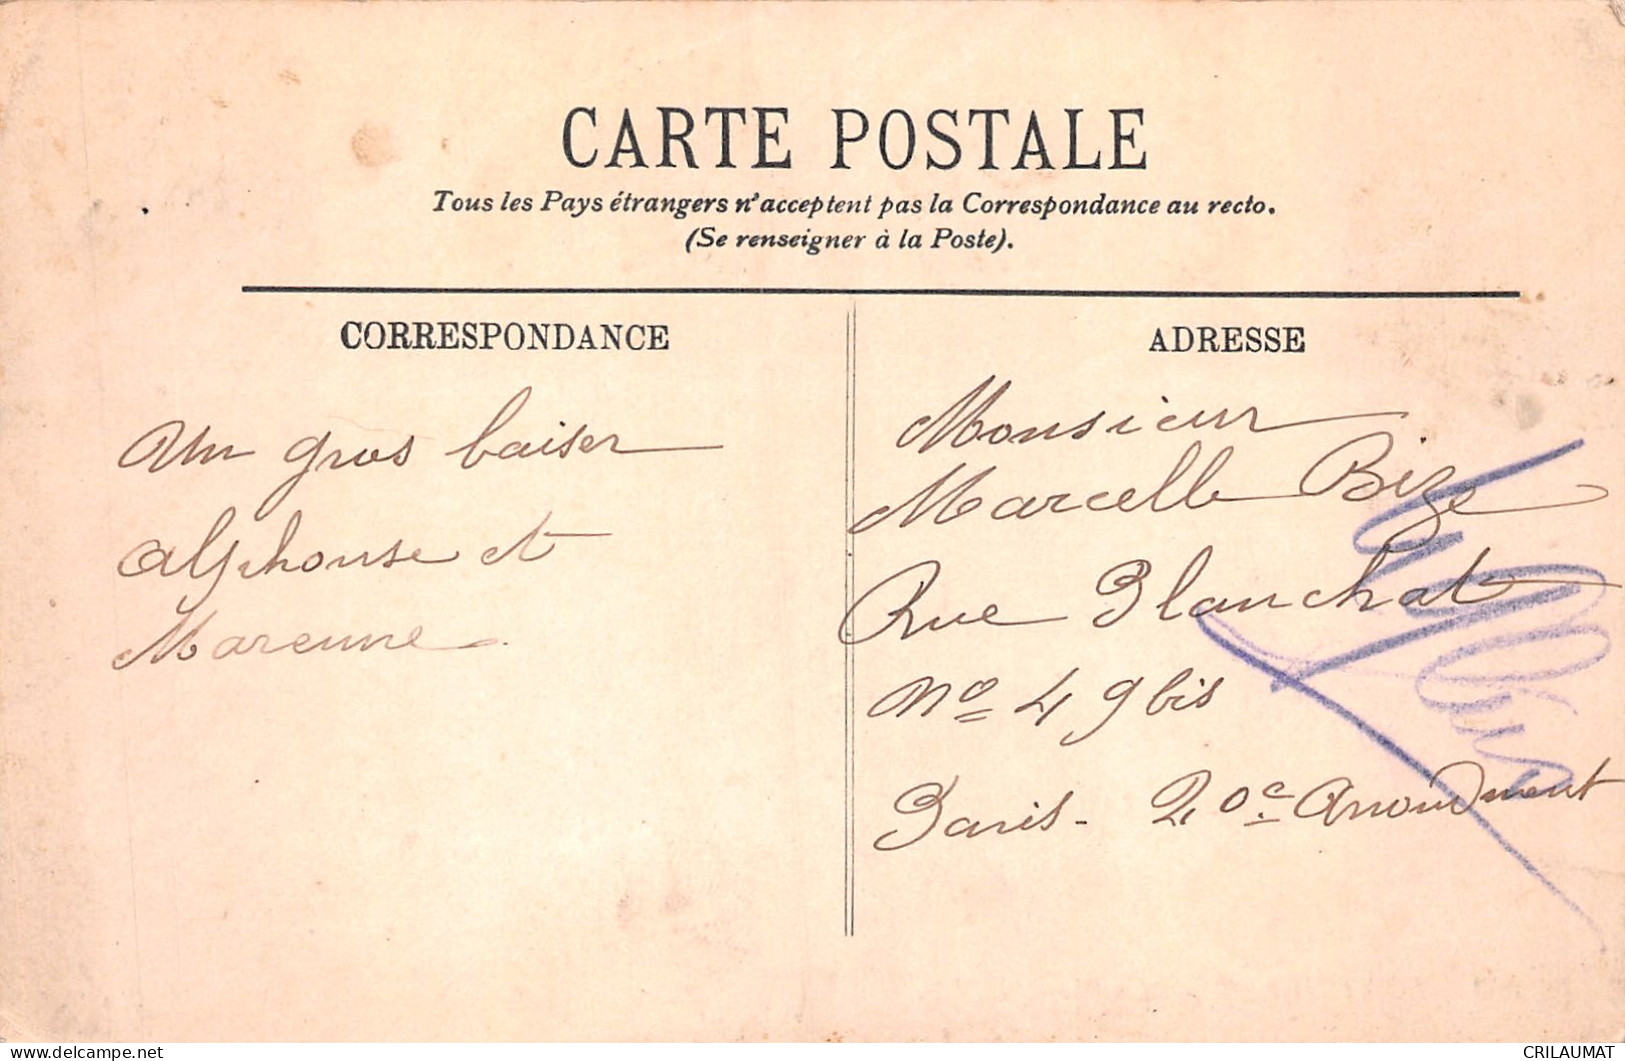 CARTE POSTALE
Tous les Pays étrangers n'acceptent pas la Correspondance au recto.
(Se renseigner à la Poste).
CORRESPONDANCE
ADRESSE
Un gros baiser
Alphonse et
Marenne.
Monsieur
Marcelle Bize
Rue Planchat
No 49 bis
Paris - 20e Arrondment
CRILAUMAT